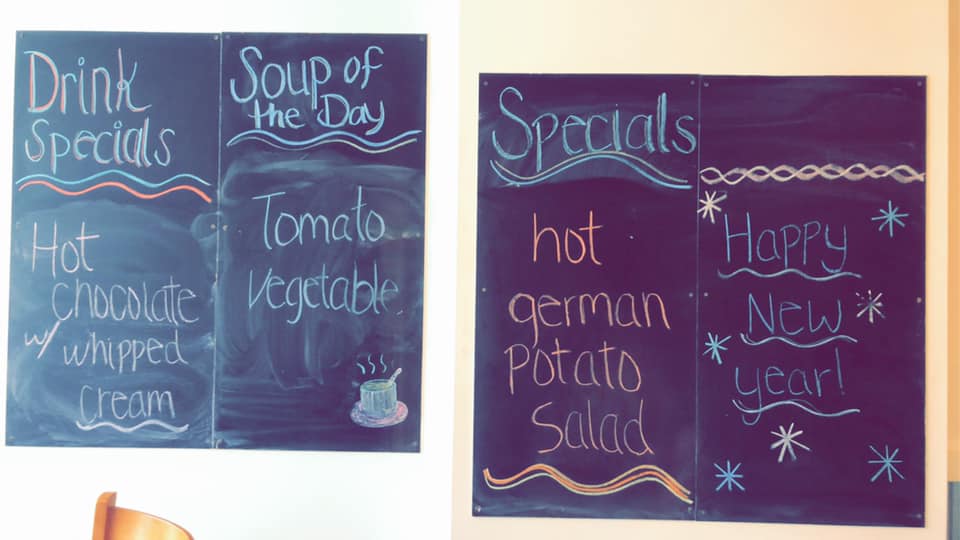 Drink
Specials
Hot
chocolate
w/ whipped
cream
Soup of
the Day
Tomato
Vegetable
Specials
hot
german
potato
salad
Happy
New
year!